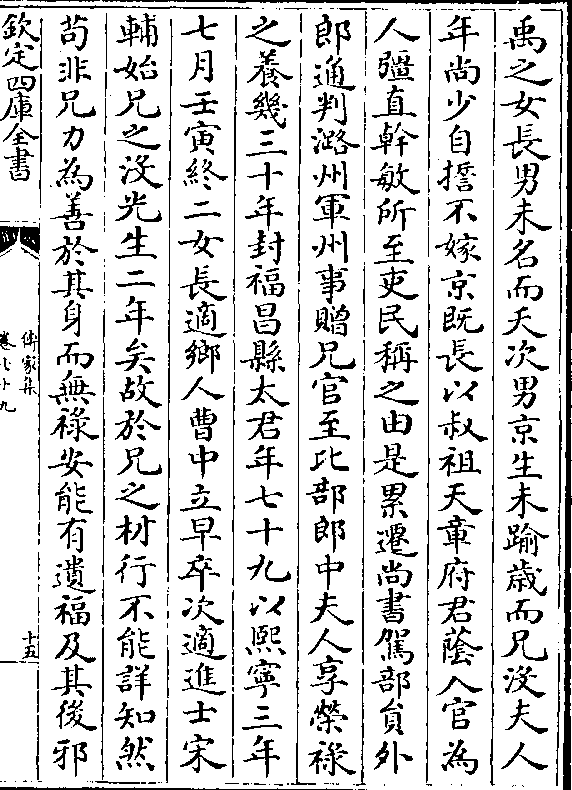 禹之女長男未名而夭次男京生未踰歳而兄沒夫人
年尚少自誓不嫁京既長以叔祖天章府君蔭入官為
人彊直幹敏所至吏民稱之由是累遷尚書駕部員外
郎通判潞州軍州事贈兄官至比部郎中夫人享榮禄
之養幾三十年封福昌縣太君年七十九以熙寧三年
七月壬寅終二女長適鄉人曹中立早卒次適進士宋
輔始兄之沒光生二年矣故於兄之材行不能詳知然
苟非兄力為善於其身而無祿安能有遺福及其後邪
欽定四庫全書
傳家集
卷七十九
十五